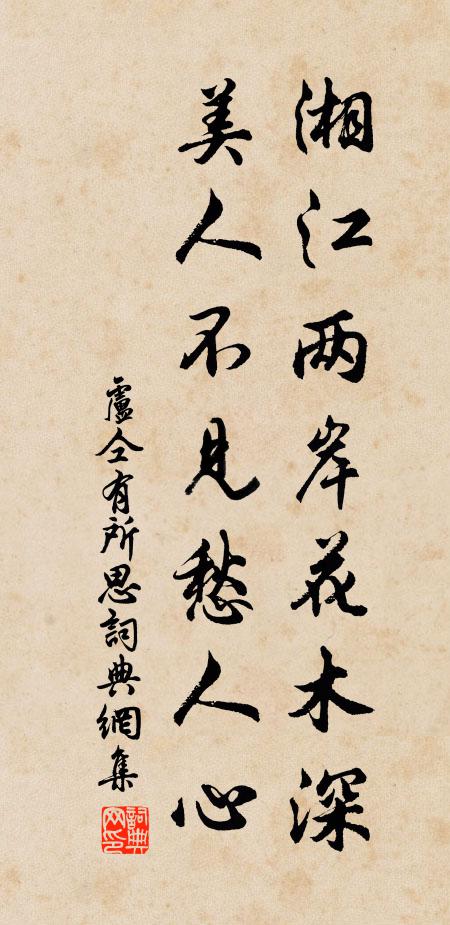 湘江两岸花木深
美人不见愁人心
盧仝有所思詞典網集
詞典网印